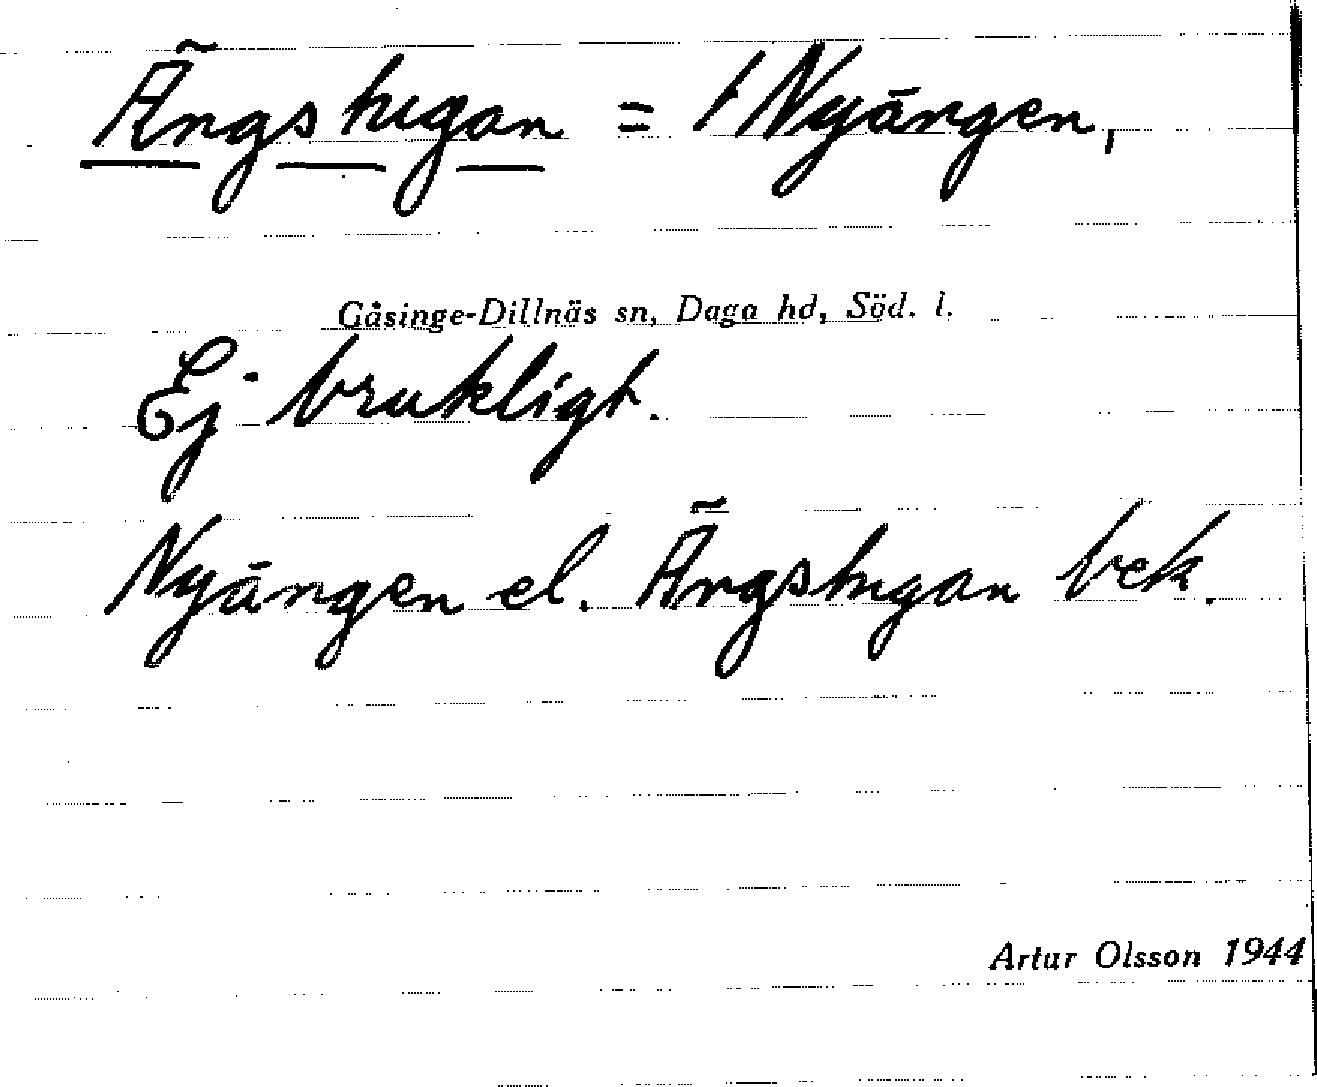 Ängstugan = †Nyängen,
Gåsinge-Dillnäs sn, Daga hd, Söd. l.
Ej brukligt.
Nyängen el. Ängstugan bek.
Artur Olsson 1944